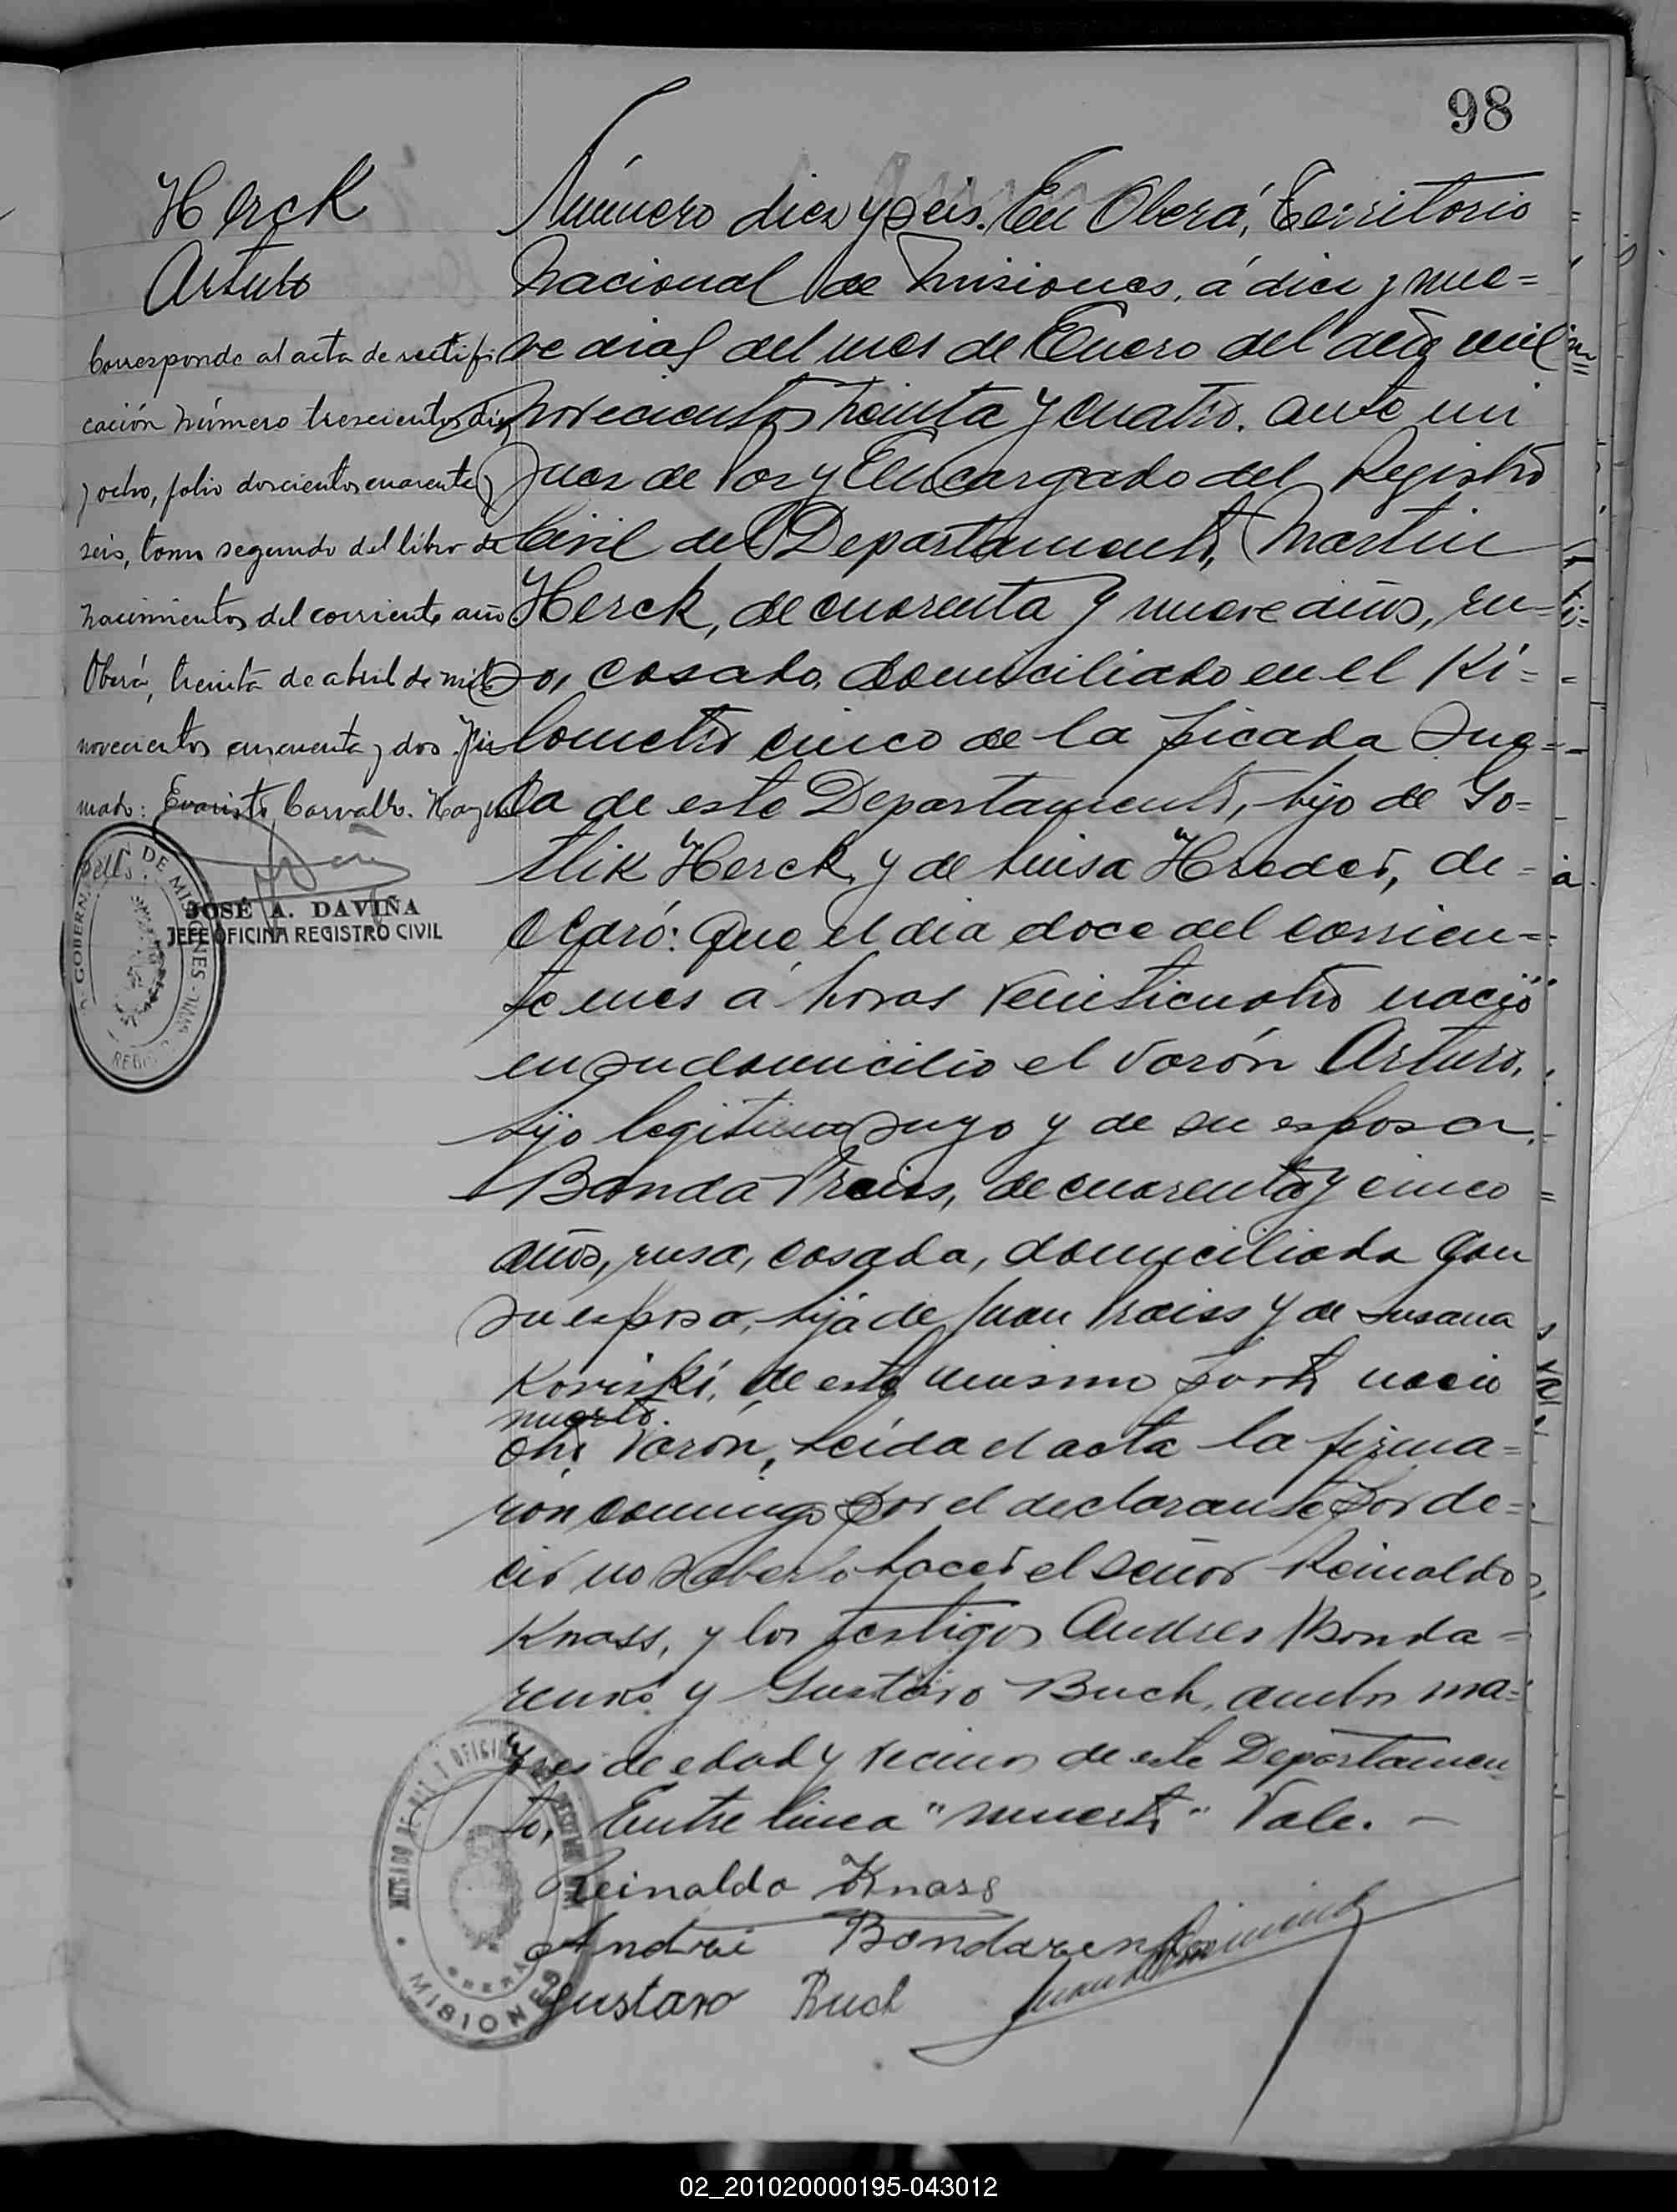 98
Herck
Arturo
Corresponde al acta de rectifi
cación número trescientos diez
y ocho, folio doscientos cuarenta y
seis, tomo segundo del libro de
nacimientos del corriente año.
Oberá, treinta de abril de mil
novecientos cincuenta y dos. Fir
mado: Evaristo Carvallo. Hay un
sello.
JOSÉ A. DAVIÑA
JEFE OFICINA REGISTRO CIVIL
Número diez y seis. En Oberá, Territorio
Nacional de Misiones, á diez y nue=
ve dias del mes de Enero del año mil
novecientos treinta y cuatro. ante mi
Juez de Paz y Encargado del Registro
Civil del Departamento, Martin
Herck, de cuarenta y nueve años, ru-
so, casado, domiciliado en el Ki=
lometro cinco de la picada Sue=
cia de este Departamento, hijo de Go=
tlik Herck y de Luisa Hreder, de-
claró: Que el dia doce del corrien=
te mes a horas veinticuatro nació
en su domicilio el varón Arturo,
hijo legitimo suyo y de su esposa
Banda Praiss, de cuarenta y cinco
años, rusa, casada, domiciliada con
su esposo, hija de Juan Praiss y de Susana
Koriski, de este mismo parto nacio
muerto.
otro varón, Leída el acta la firma=
ron conmigo por el declarante por de=
cir no saberlo hacer el señor Reinaldo
Knass, y los testigos Andres Bonda=
renko y Gustavo Buch, ambos ma=
yores de edad y vecinos de este Departamen
to, Entre linea "muerto" Vale. —
Reinaldo Knass
Andrei Bondarenko
Gustavo Buch
MISIONES
02_201020000195-043012